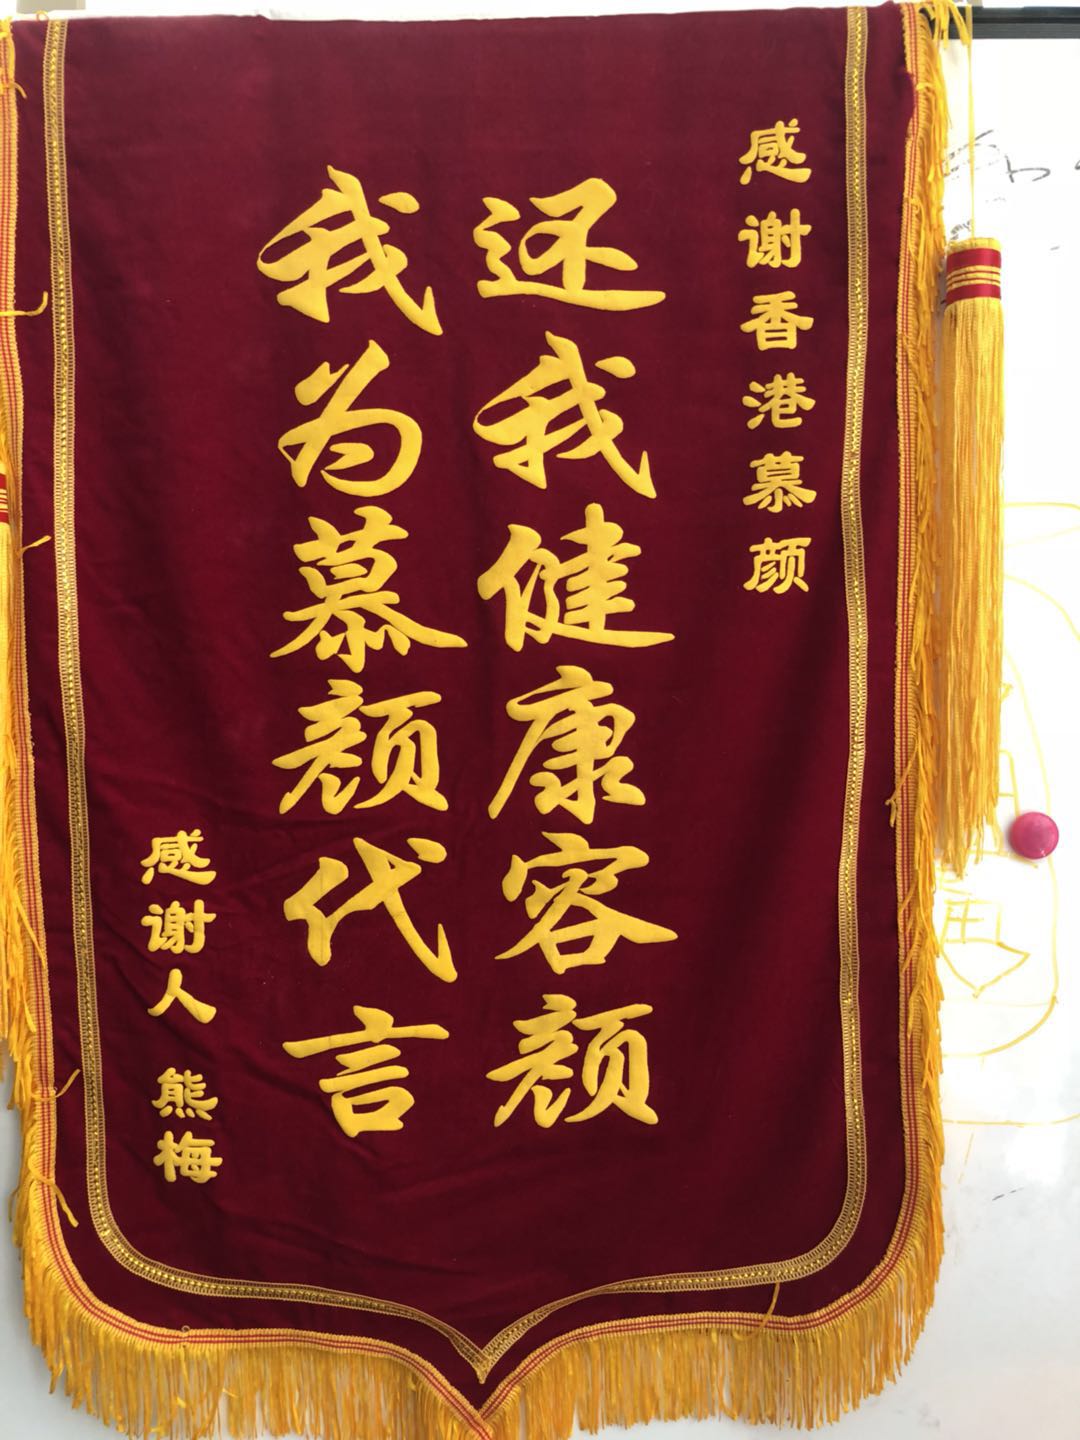 感谢香港慕颜
还我健康容颜
我为慕颜代言
感谢人 熊梅